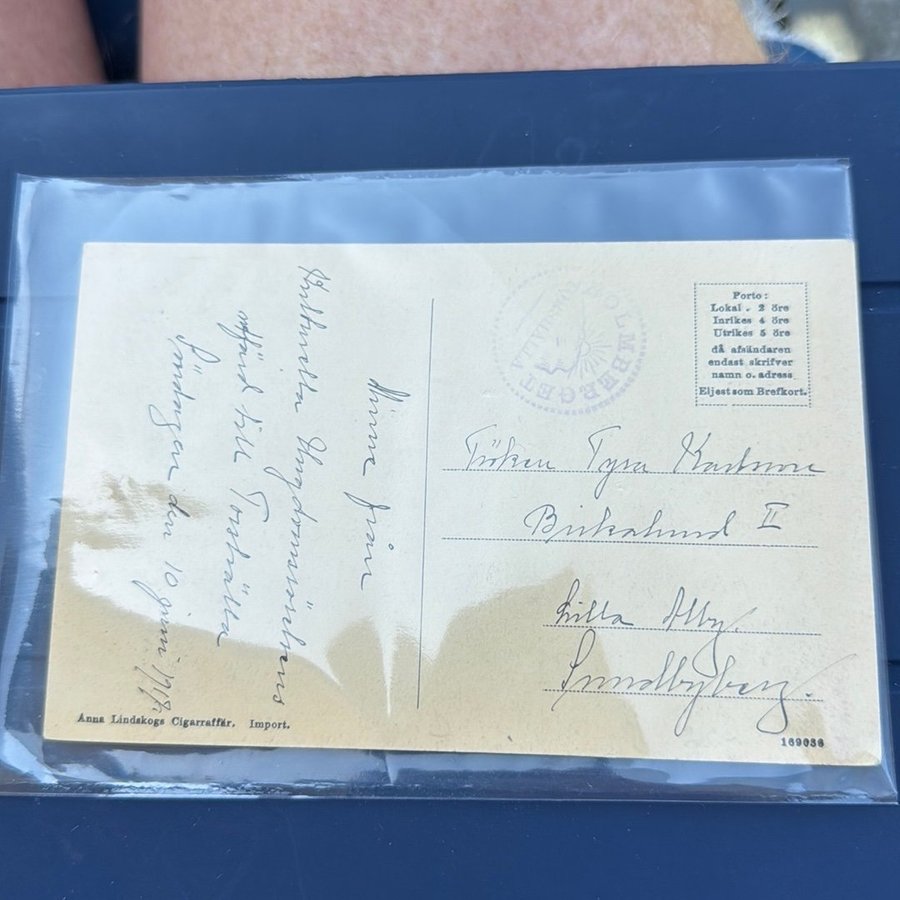 Minne från
Huthuvilla Ungdomsvärldens
utfärd till Torshälla
Söndagen den 10 juni 1917.
HOLMBERGET
Porto:
Lokal . 2 öre
Inrikes 4 öre
Utrikes 5 öre
då afsändaren
endast skrifver
namn o. adress
Eljest som Brefkort.
Fröken Tyra Karlsson
Birkalund II
Lilla Alby.
Sundbyberg.
Anna Lindskogs Cigarraffär. Import.
169036